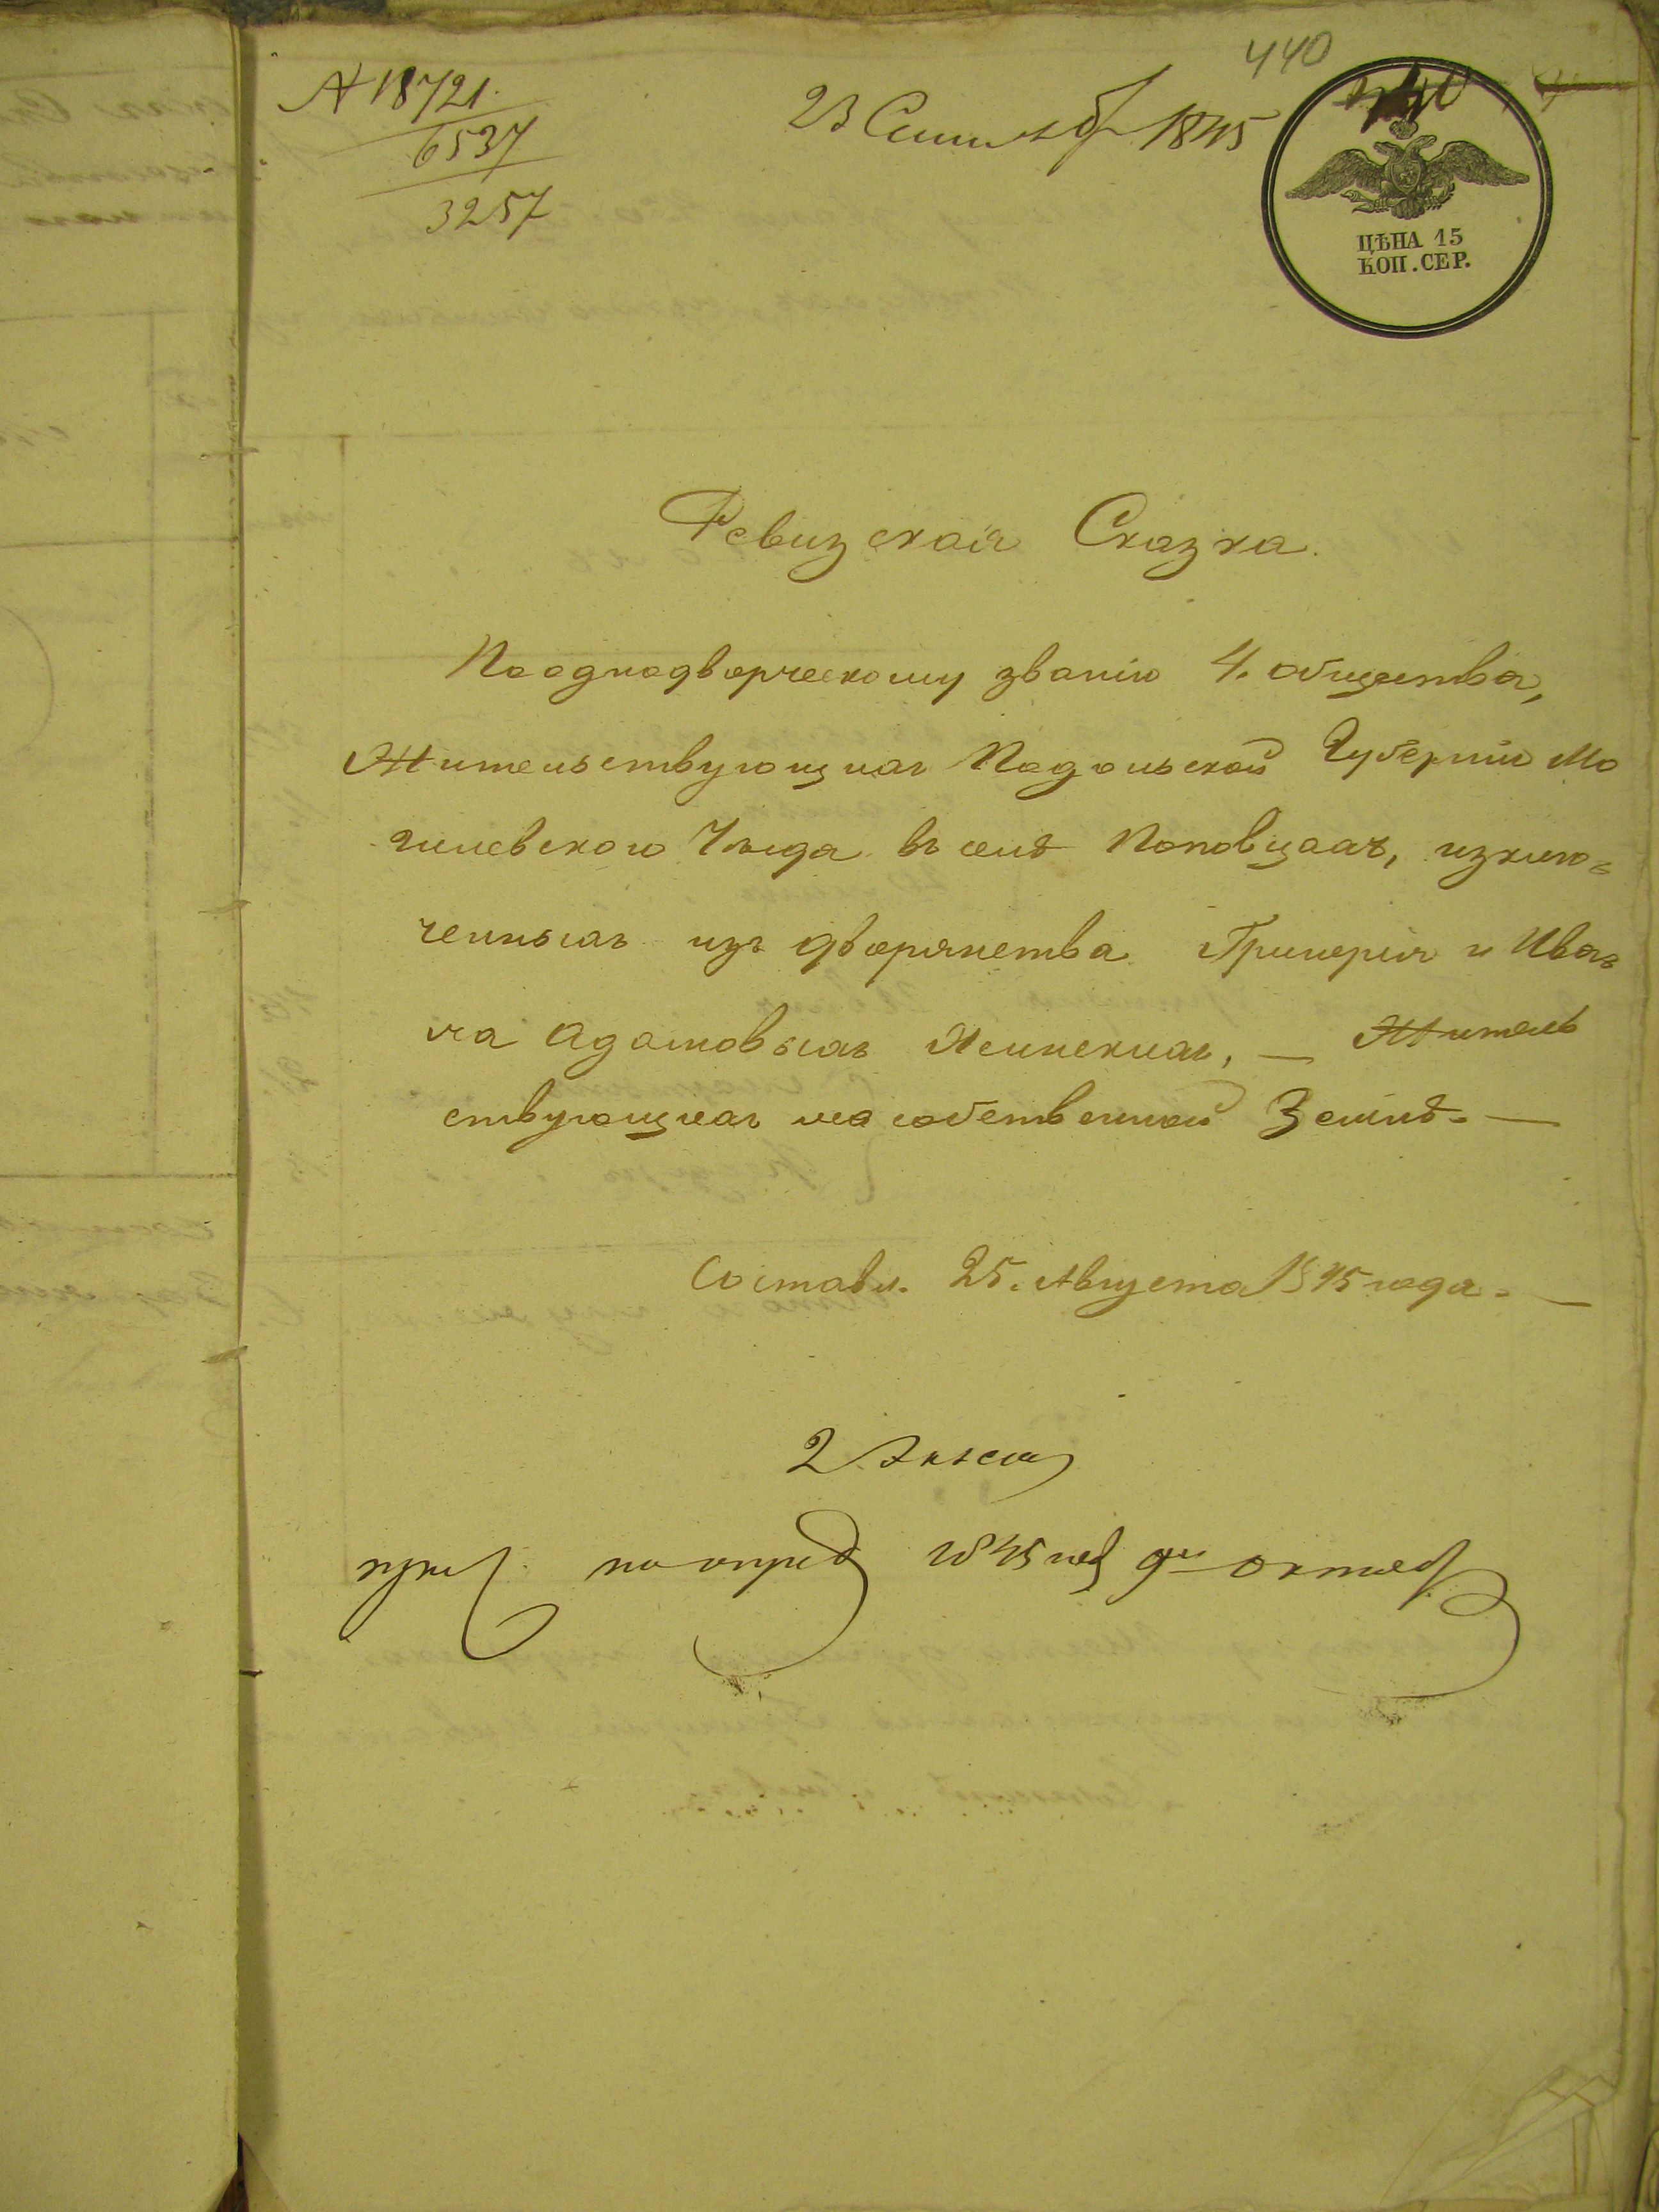 440
№ 18721.
6537
3257
23 Сентябр 1845
ЦѢНА 15
КОП. СЕР.
Ревизская Сказка.
По однодворческому званію 4. общества,
Жительствующихъ Подольской Губерніи Мо
гилевского Уѣзда въ селѣ Поповцахъ, изклю-
ченныхъ изъ дворянства Григорія и Ива-
на Адамовыхъ — Житель
ствующихъ на собственной Землѣ. —
Составл. 25. Августа 1845 года. —
по опред 1845 год 9го октяб